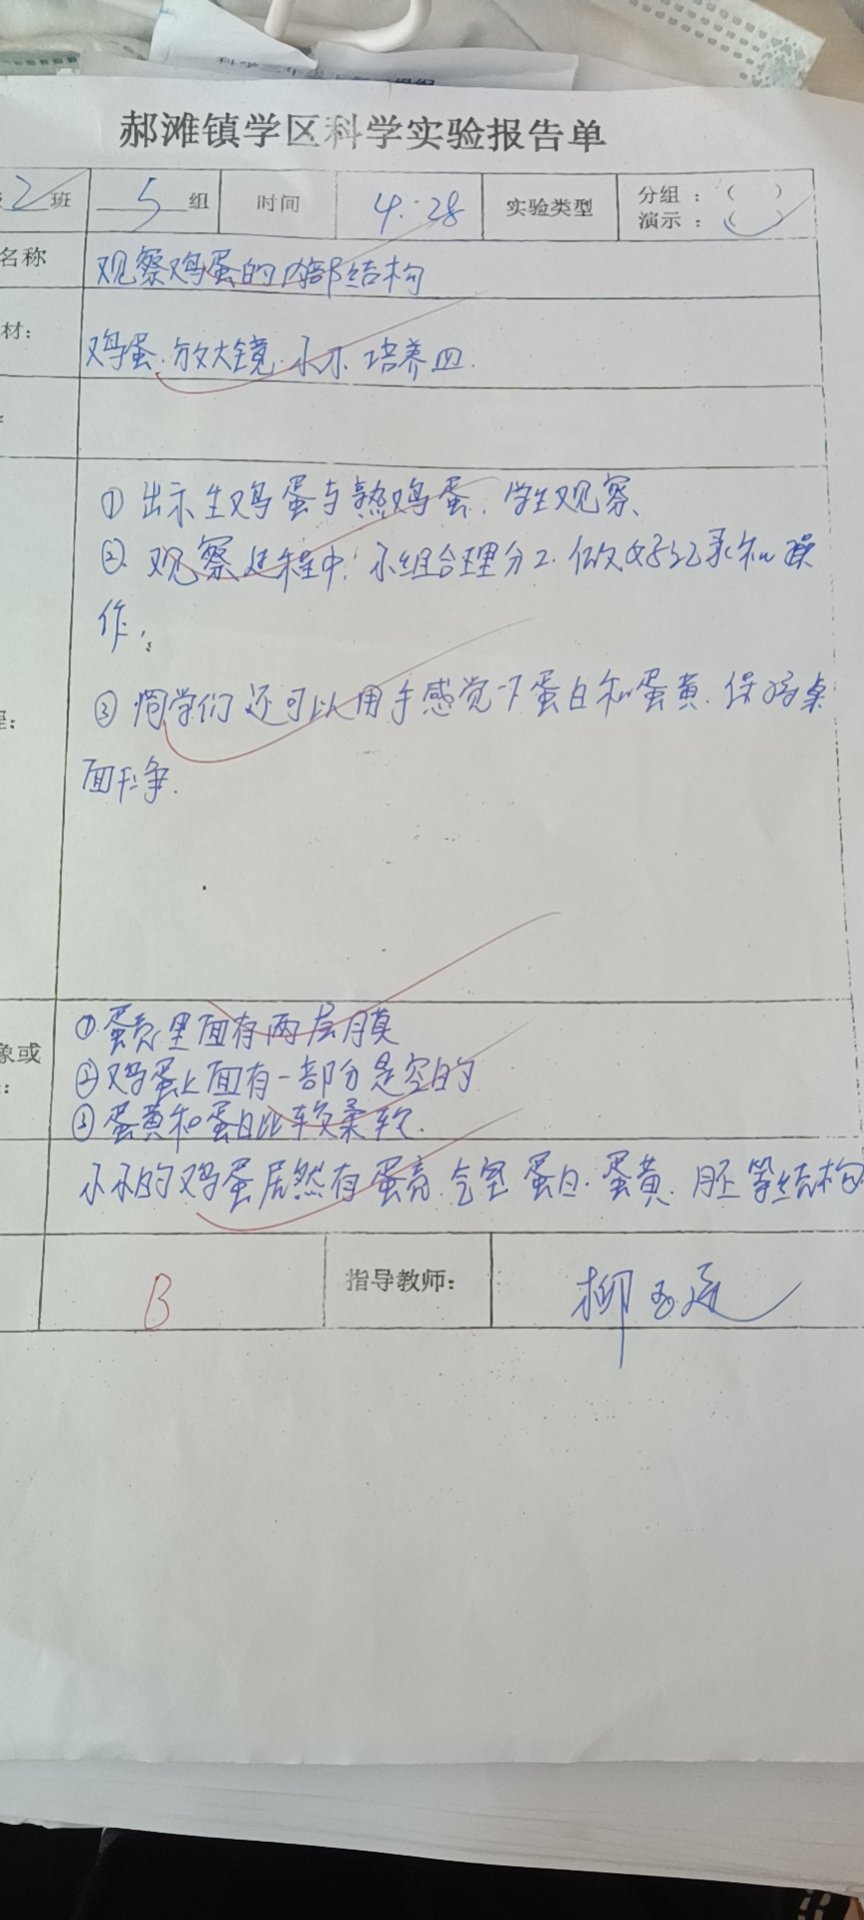 郝滩镇学区科学实验报告单
2班 5组 时间 4.28 实验类型 分组：（ ）
演示：（✓）
名称 观察鸡蛋的内部结构
材： 鸡蛋.放大镜.小木 培养皿.
：
①出示生鸡蛋与熟鸡蛋.学生观察、
②观察过程中.小组合理分工.做好记录和操
作.
③同学们还可以用手感觉一下蛋白和蛋黄.保持桌
程： 面干净.
①蛋壳里面有两层膜
象或 ②鸡蛋上面有一部分是空的
： ③蛋黄和蛋白比较柔软.
小小的鸡蛋居然有蛋壳.气室 蛋白.蛋黄.胚等结构
B 指导教师： 柳